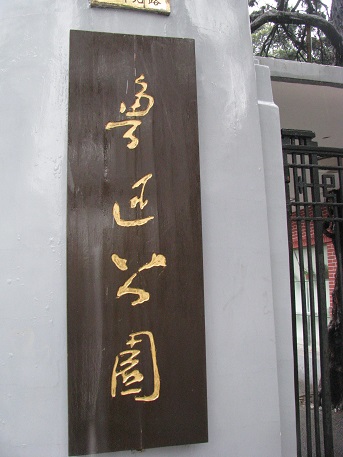 魯迅公園